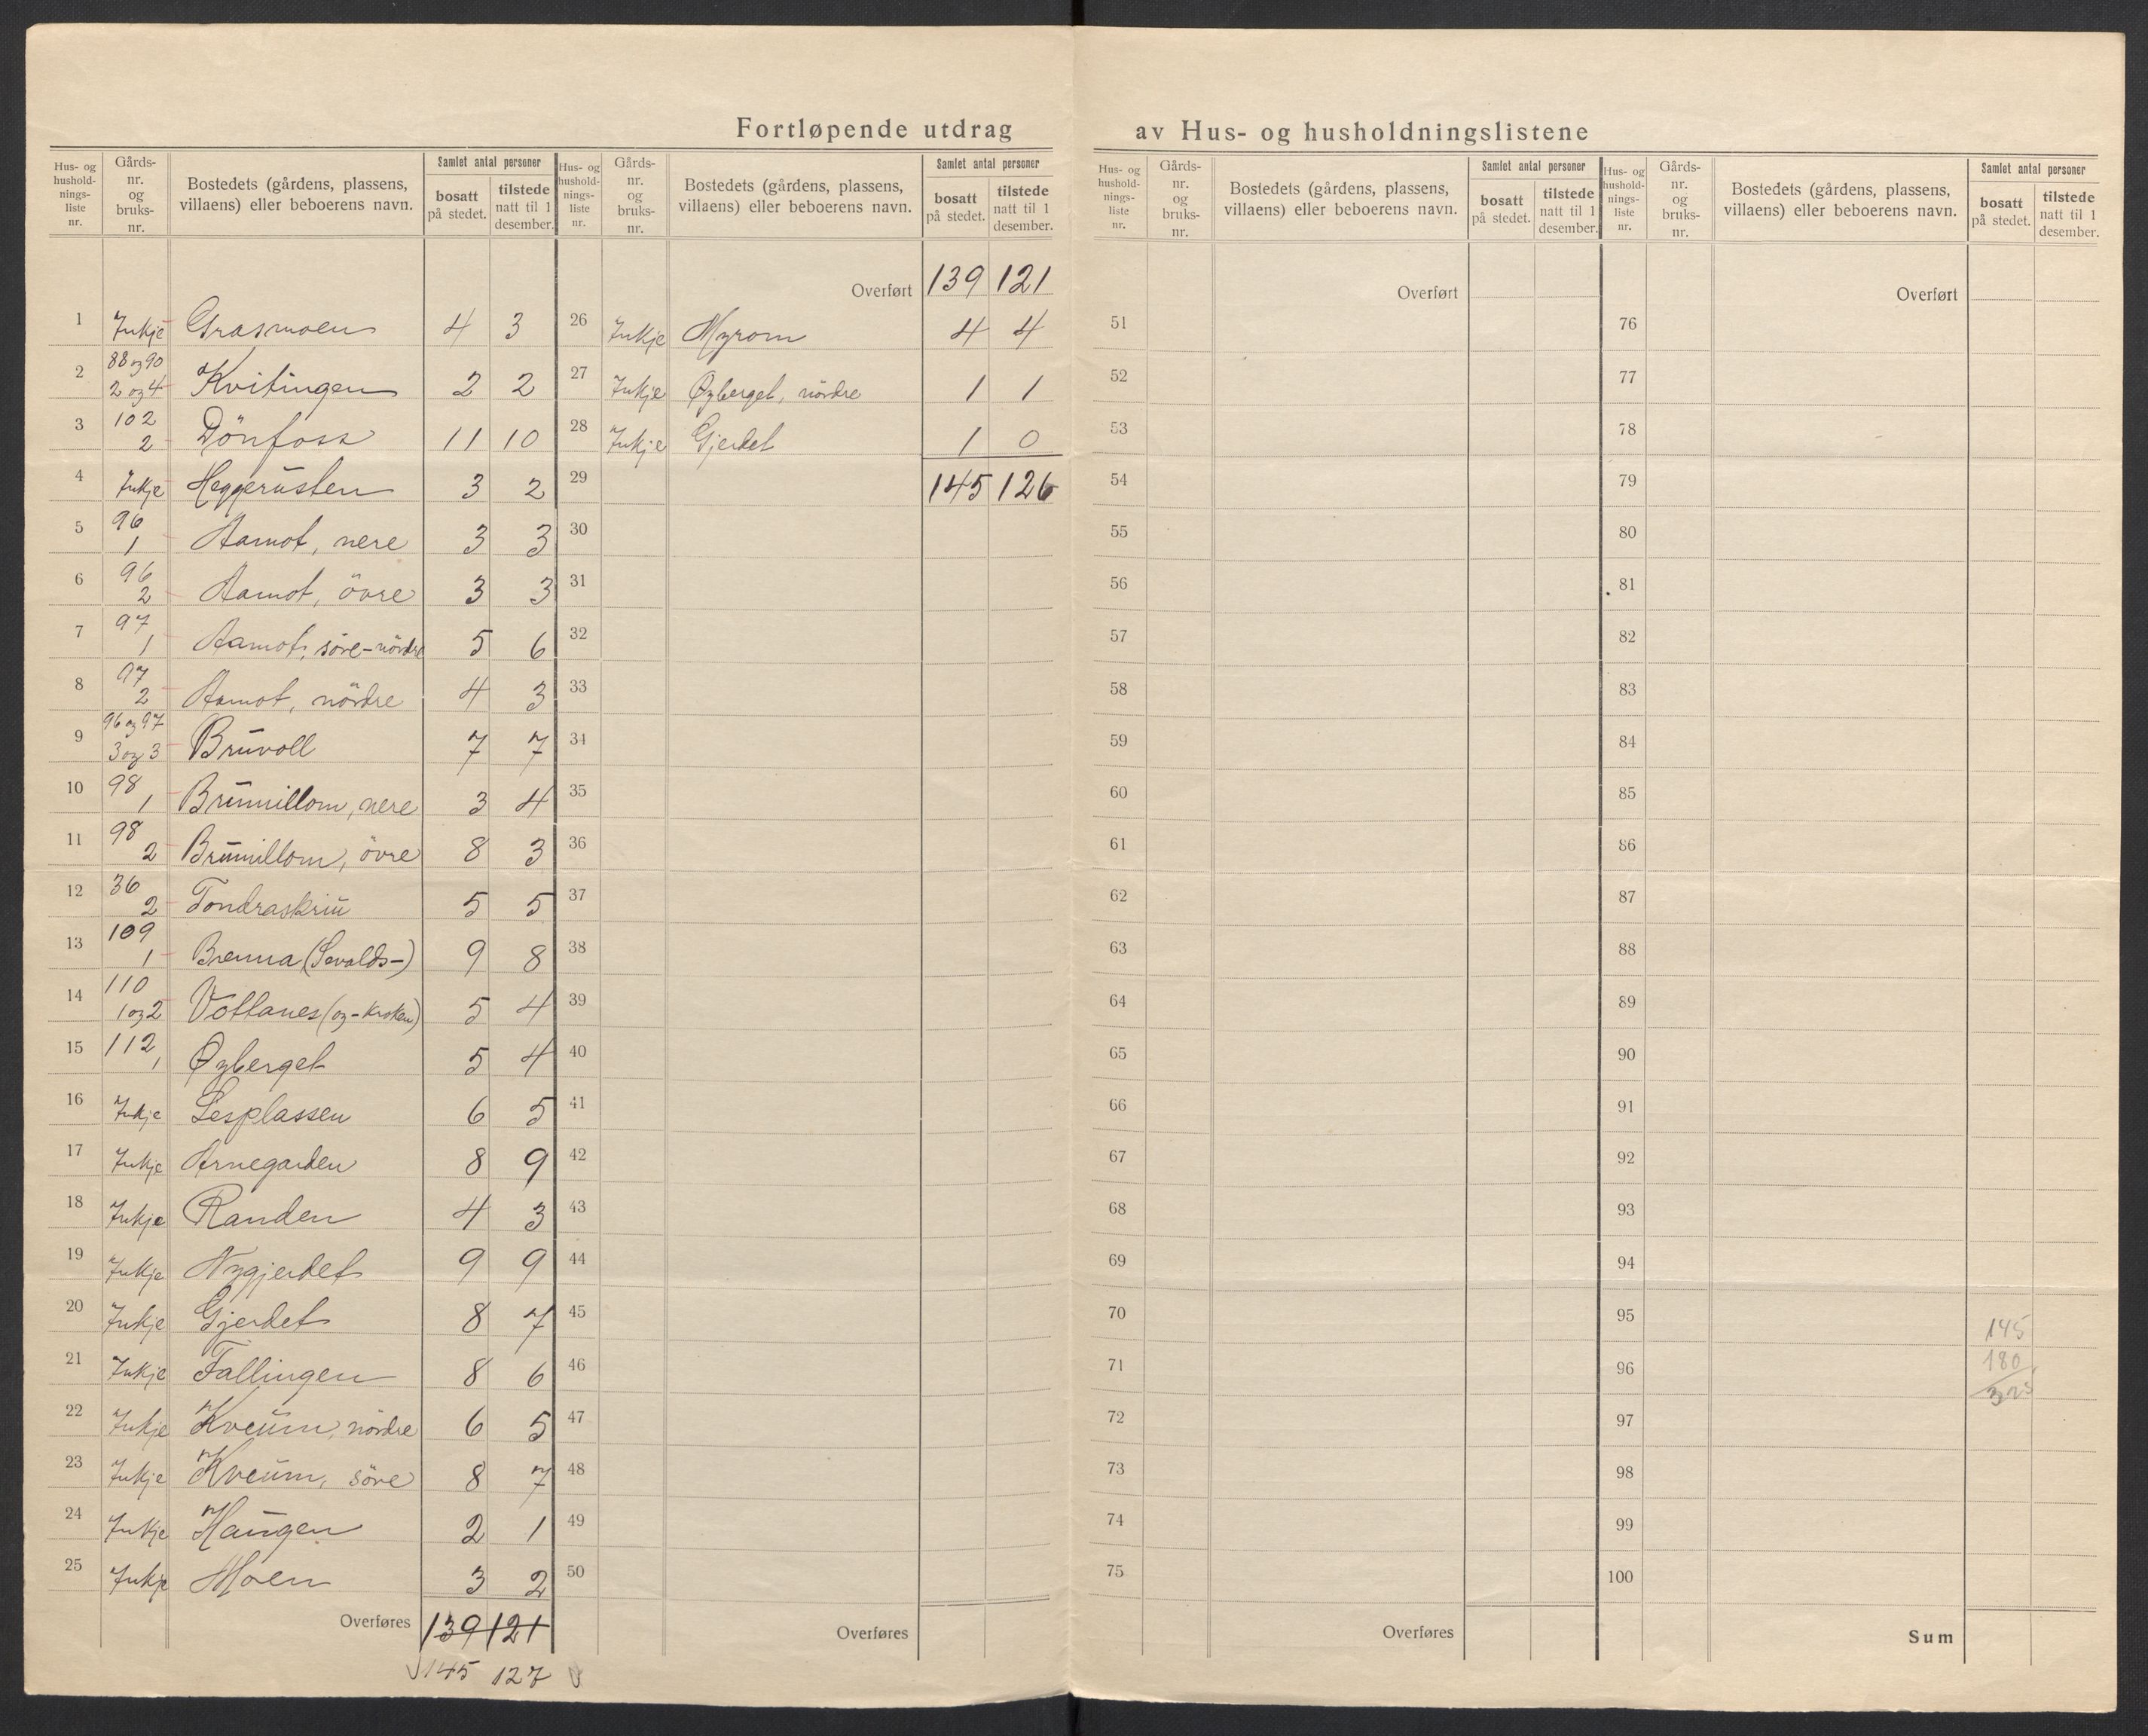 Fortløpende utdrag av Hus- og husholdningslistene
Hus- og hushold- nings- liste nr. | Gårds- nr. og bruks- nr. | Bostedets (gårdens, plassens, villaens) eller beboerens navn. | Samlet antal personer | bosatt på stedet. | tilstede natt til 1 desember.
1 Inkje Grasmoen 4 3
2 88 og 90 2 og 4 Kvitingen 2 2
3 102 2 Dönfoss 11 10
4 Inkje Heggerusten 3 2
5 96 1 Aamot, nere 3 3
6 96 2 Aamot, övre 3 3
7 97 1 Aamot, söre-nördre 5 6
8 97 2 Aamot, nördre 4 3
9 96 og 97 3 og 3 Bruvoll 7 7
10 98 1 Brumillom, nere 3 4
11 98 2 Brumillom, övre 8 3
12 36 2 Tondraskriu 5 5
13 109 1 Brenna (Sevalds-) 9 8
14 110 1 og 2 Vottanes (og -Kroken) 5 4
15 112 1 Øyberget 5 4
16 Inkje Lesplassen 6 5
17 Inkje Arnegarden 8 9
18 Inkje Randen 4 3
19 Inkje Nygjerdet 9 9
20 Inkje Gjerdet 8 7
21 Inkje Fallingen 8 6
22 Inkje Kveum, nördre 6 5
23 Inkje Kveum, söre 8 7
24 Inkje Haugen 2 1
25 Inkje Moen 3 2
Overføres 139 121
145 127
Hus- og hushold- nings- liste nr. | Gårds- nr. og bruks- nr. | Bostedets (gårdens, plassens, villaens) eller beboerens navn. | Samlet antal personer | bosatt på stedet. | tilstede natt til 1 desember.
Overført 139 121
26 Inkje Myrom 4 4
27 Inkje Øyberget, nördre 1 1
28 Inkje Gjerdet 1 0
29 145 126
30
31
32
33
34
35
36
37
38
39
40
41
42
43
44
45
46
47
48
49
50
Overføres
Hus- og hushold- nings- liste nr. | Gårds- nr. og bruks- nr. | Bostedets (gårdens, plassens, villaens) eller beboerens navn. | Samlet antal personer | bosatt på stedet. | tilstede natt til 1 desember.
Overført
51
52
53
54
55
56
57
58
59
60
61
62
63
64
65
66
67
68
69
70
71
72
73
74
75
Overføres
Hus- og hushold- nings- liste nr. | Gårds- nr. og bruks- nr. | Bostedets (gårdens, plassens, villaens) eller beboerens navn. | Samlet antal personer | bosatt på stedet. | tilstede natt til 1 desember.
Overført
76
77
78
79
80
81
82
83
84
85
86
87
88
89
90
91
92
93
94
95 145
96 180
325
97
98
99
100
Sum